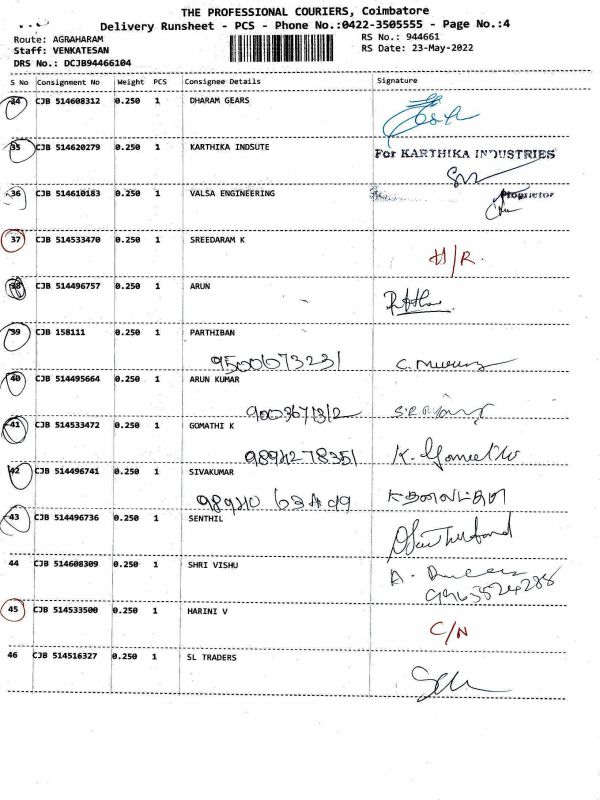 THE PROFESSIONAL COURIERS, Coimbatore
Delivery Runsheet - PCS - Phone No.:0422-3505555 - Page No.:4
Route: AGRAHARAM RS No.: 944661
Staff: VENKATESAN RS Date: 23-May-2022
DRS No.: DCJB94466104
S No Consignment No Weight PCS Consignee Details Signature
34 CJB 514608312 0.250 1 DHARAM GEARS
35 CJB 514620279 0.250 1 KARTHIKA INDSUTE
For KARTHIKA INDUSTRIES
36 CJB 514610183 0.250 1 VALSA ENGINEERING Proprietor
37 CJB 514533470 0.250 1 SREEDARAM K
H/R.
38 CJB 514496757 0.250 1 ARUN
39 CJB 158111 0.250 1 PARTHIBAN
9500673231
40 CJB 514495664 0.250 1 ARUN KUMAR
41 CJB 514533472 0.250 1 GOMATHI K
9894278351 K.
42 CJB 514496741 0.250 1 SIVAKUMAR
43 CJB 514496736 0.250 1 SENTHIL
44 CJB 514608309 0.250 1 SHRI VISHU
45 CJB 514533500 0.250 1 HARINI V
C/N
46 CJB 514516327 0.250 1 SL TRADERS